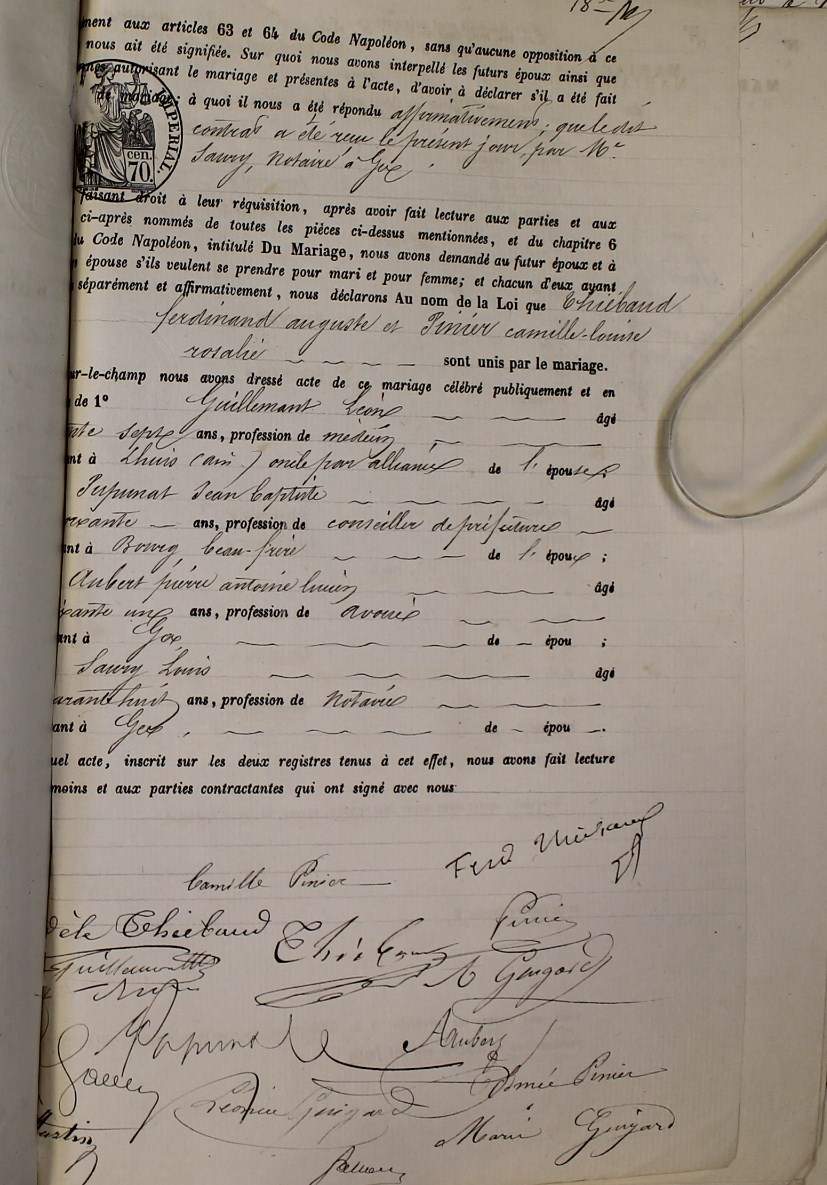 ment aux articles 63 et 64 du Code Napoléon, sans qu'aucune opposition à ce
nous ait été signifiée. Sur quoi nous avons interpellé les futurs époux ainsi que
autorisant le mariage et présentes à l'acte, d'avoir à déclarer s'il a été fait
de mariage; à quoi il nous a été répondu affirmativement; que le dit
contrat a été reçu le présent jour, par Me
Saury, Notaire à Gex.
IMPERIAL.
cen.
70.
faisant droit à leur réquisition, après avoir fait lecture aux parties et aux
ci-après nommés de toutes les pièces ci-dessus mentionnées, et du chapitre 6
du Code Napoléon, intitulé Du Mariage, nous avons demandé au futur époux et à
épouse s'ils veulent se prendre pour mari et pour femme; et chacun d'eux ayant
séparément et affirmativement, nous déclarons Au nom de la Loi que Thiébaud
ferdinand auguste et Pinier camille-louise
rosalie sont unis par le mariage.
ur-le-champ nous avons dressé acte de ce mariage célébré publiquement et en
de 1° Guillemant Léon âgé
nte sept ans, profession de médecin
nt à Lhuis (ain) oncle par alliance de l' épouse;
Jean Baptiste âgé
ixante ans, profession de conseiller de préfecture
ant à Bourg, beau-frère de l' époux;
Aubert pierre antoine lucien âgé
ixante un ans, profession de avoué
ant à Gex, de épou ;
Saury Louis âgé
arante huit ans, profession de Notaire
ant à Gex, de épou .
uel acte, inscrit sur les deux registres tenus à cet effet, nous avons fait lecture
moins et aux parties contractantes qui ont signé avec nous
Ferd Thiébaud
Camille Pinier
dèle Thiebaud
Thiébaud
Pinier
Guigard
Aubert
Aimée Pinier
Léonie Guigard
Marie Guigard